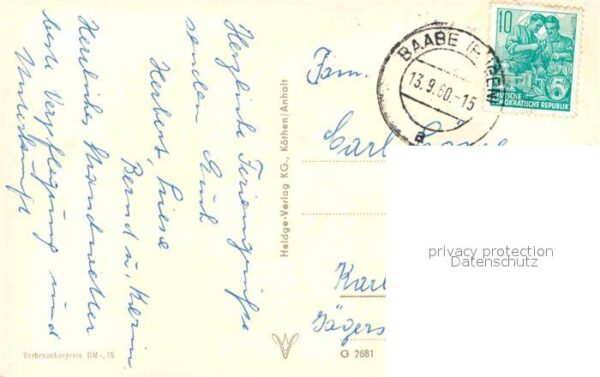 Herzliche Feriengrüße
senden Euch
Herbert, Liesa
Bernd u. Karin
Herrliches Strandwetter
beste Verpflegung und
Unterkunft
Verbraucherpreis DM -,15
Heldge-Verlag KG., Köthen/Anhalt
G 2881
Fam.
Carl
Karl
Jägers
BAABE (RÜGEN)
13.9.60.-15
a
10
DEUTSCHE
DEMOKRATISCHE REPUBLIK
privacy protection
Datenschutz